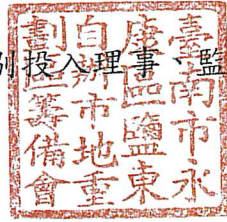 別投入理事、監
臺南市永
康區鹽東
自辦市地重
劃區籌備會